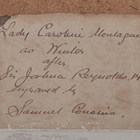 Lady Caroline Montague
as Winter
after
Sir Joshua Reynolds
Engraved by
Samuel Cousins.